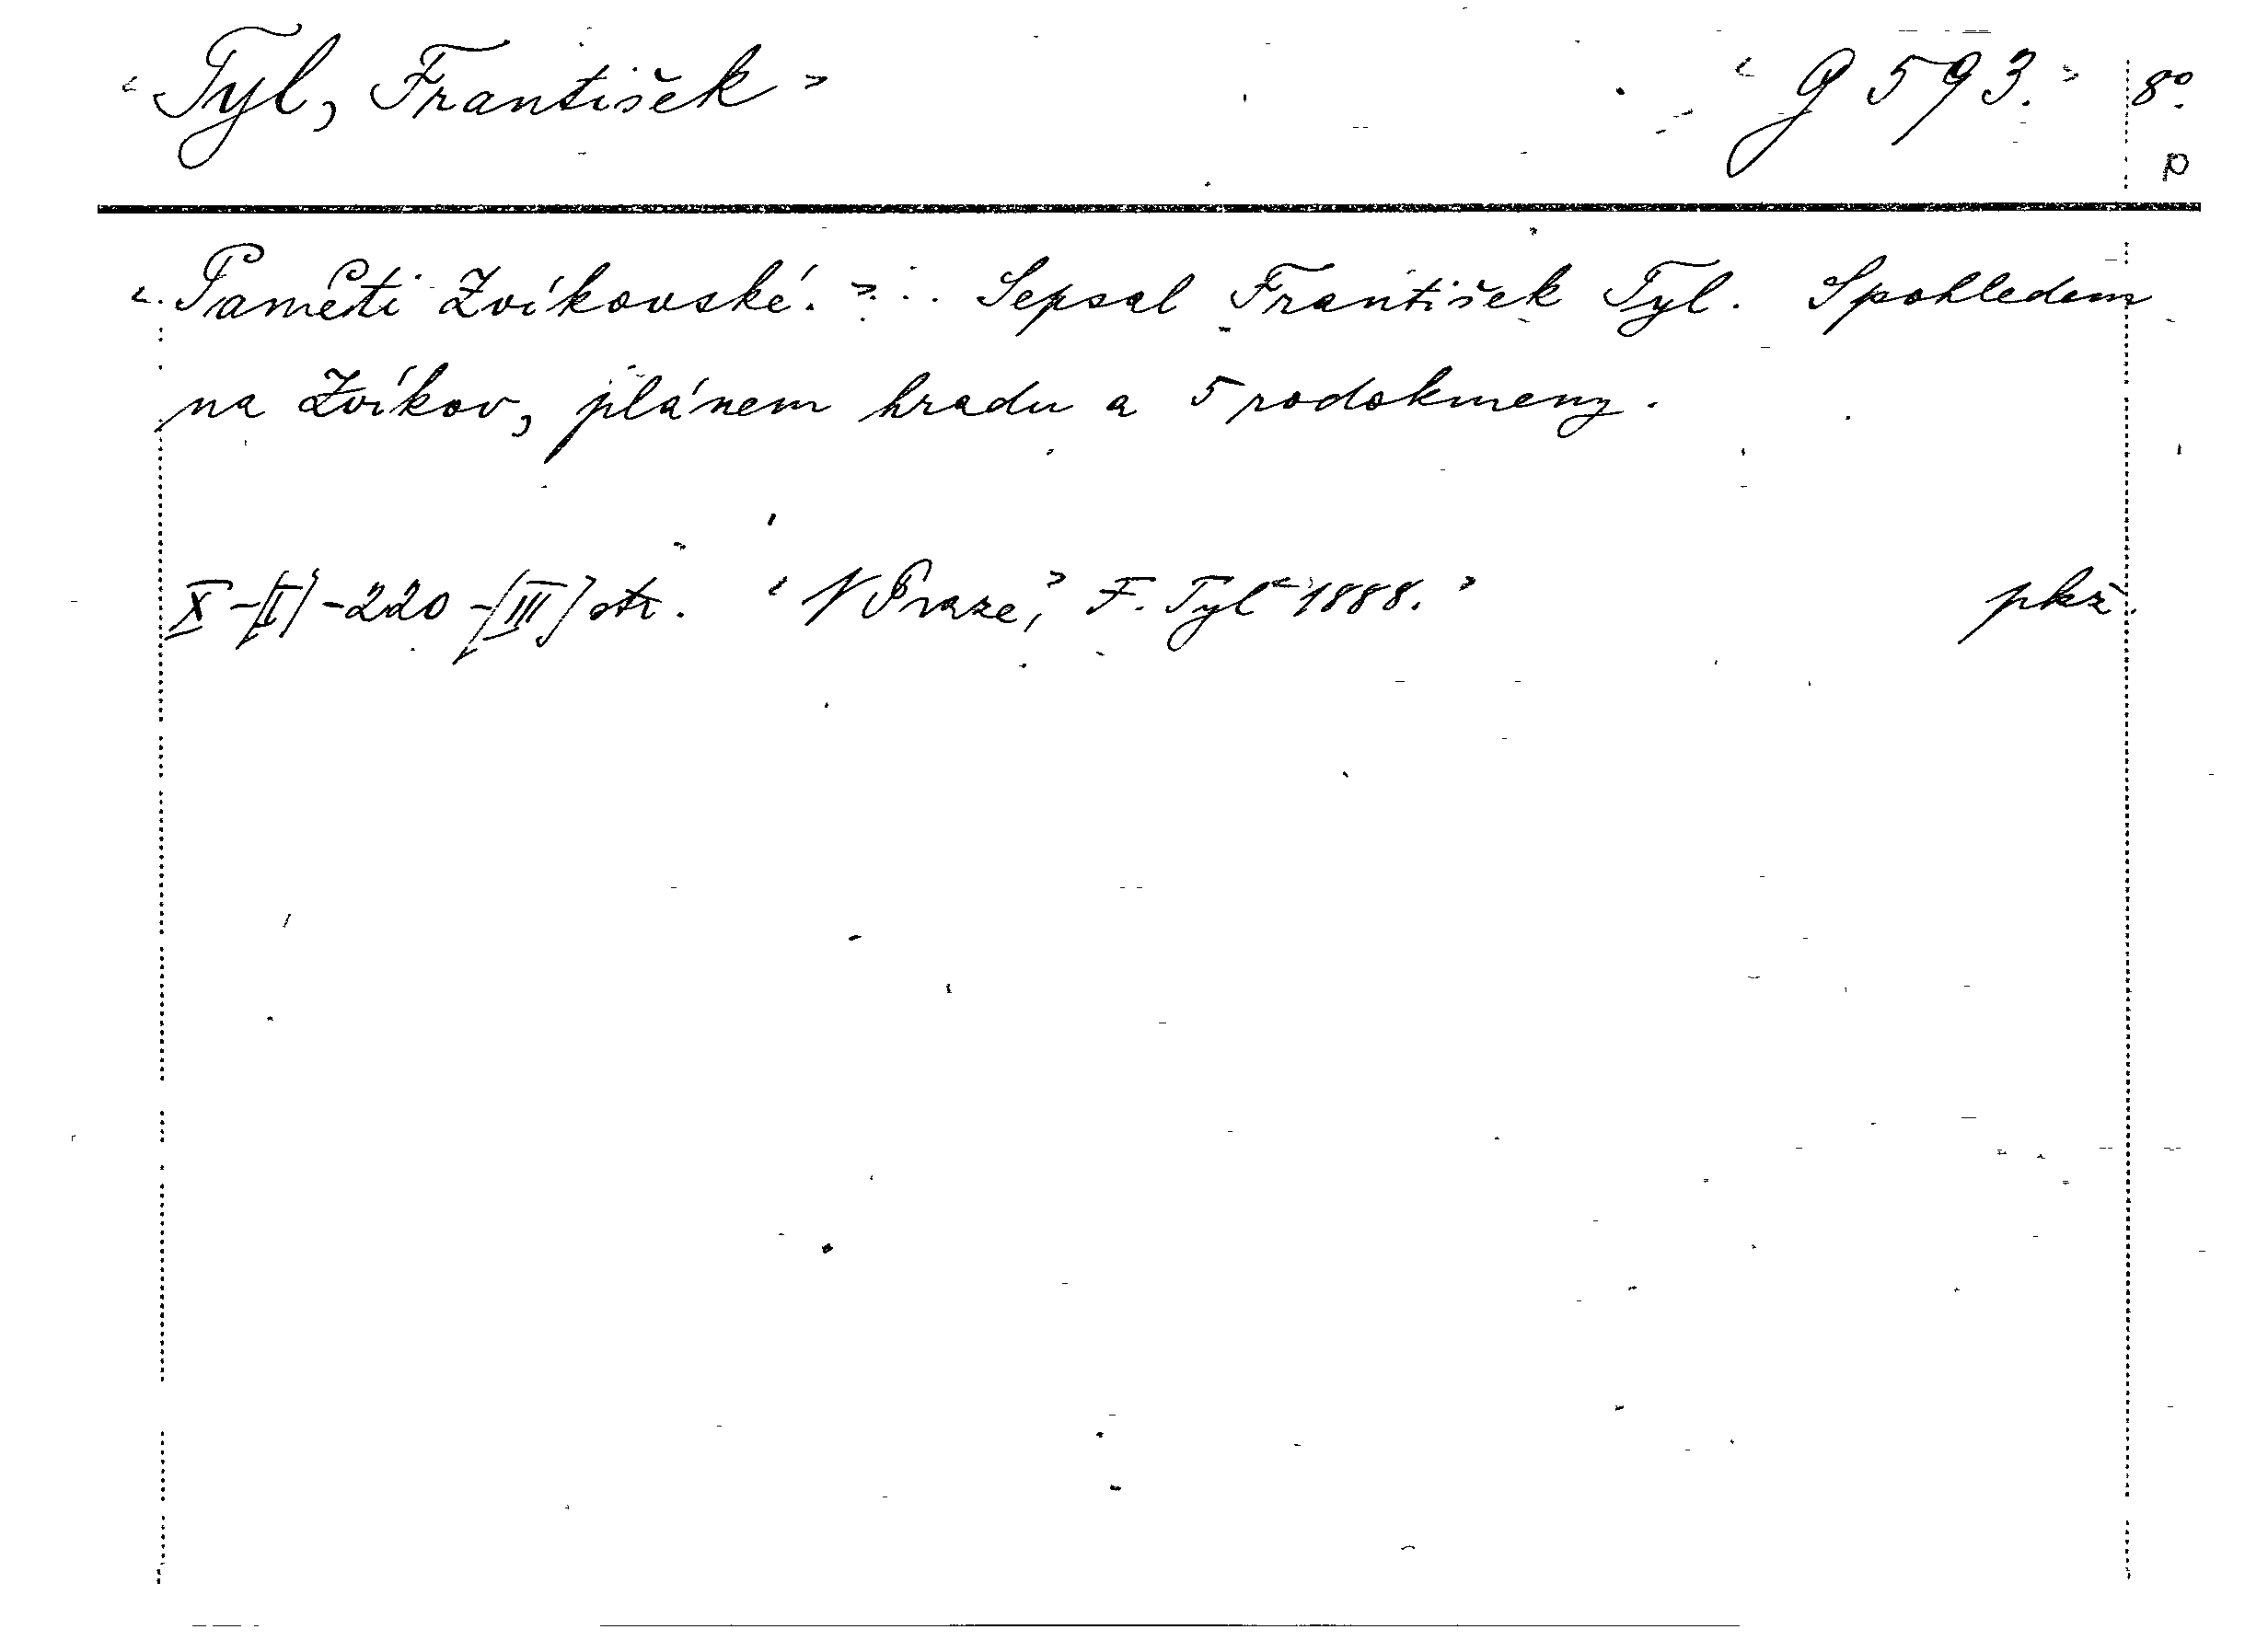 "Tyl, František" "G 593." 8°.
p
"Paměti Zvíkovské." ... Sepsal František Tyl. S pohledem
na Zvíkov, plánem hradu a 5 rodokmeny.
X-[I]-220-[III] str. "V Praze", F. Tyl "1888." pkž.